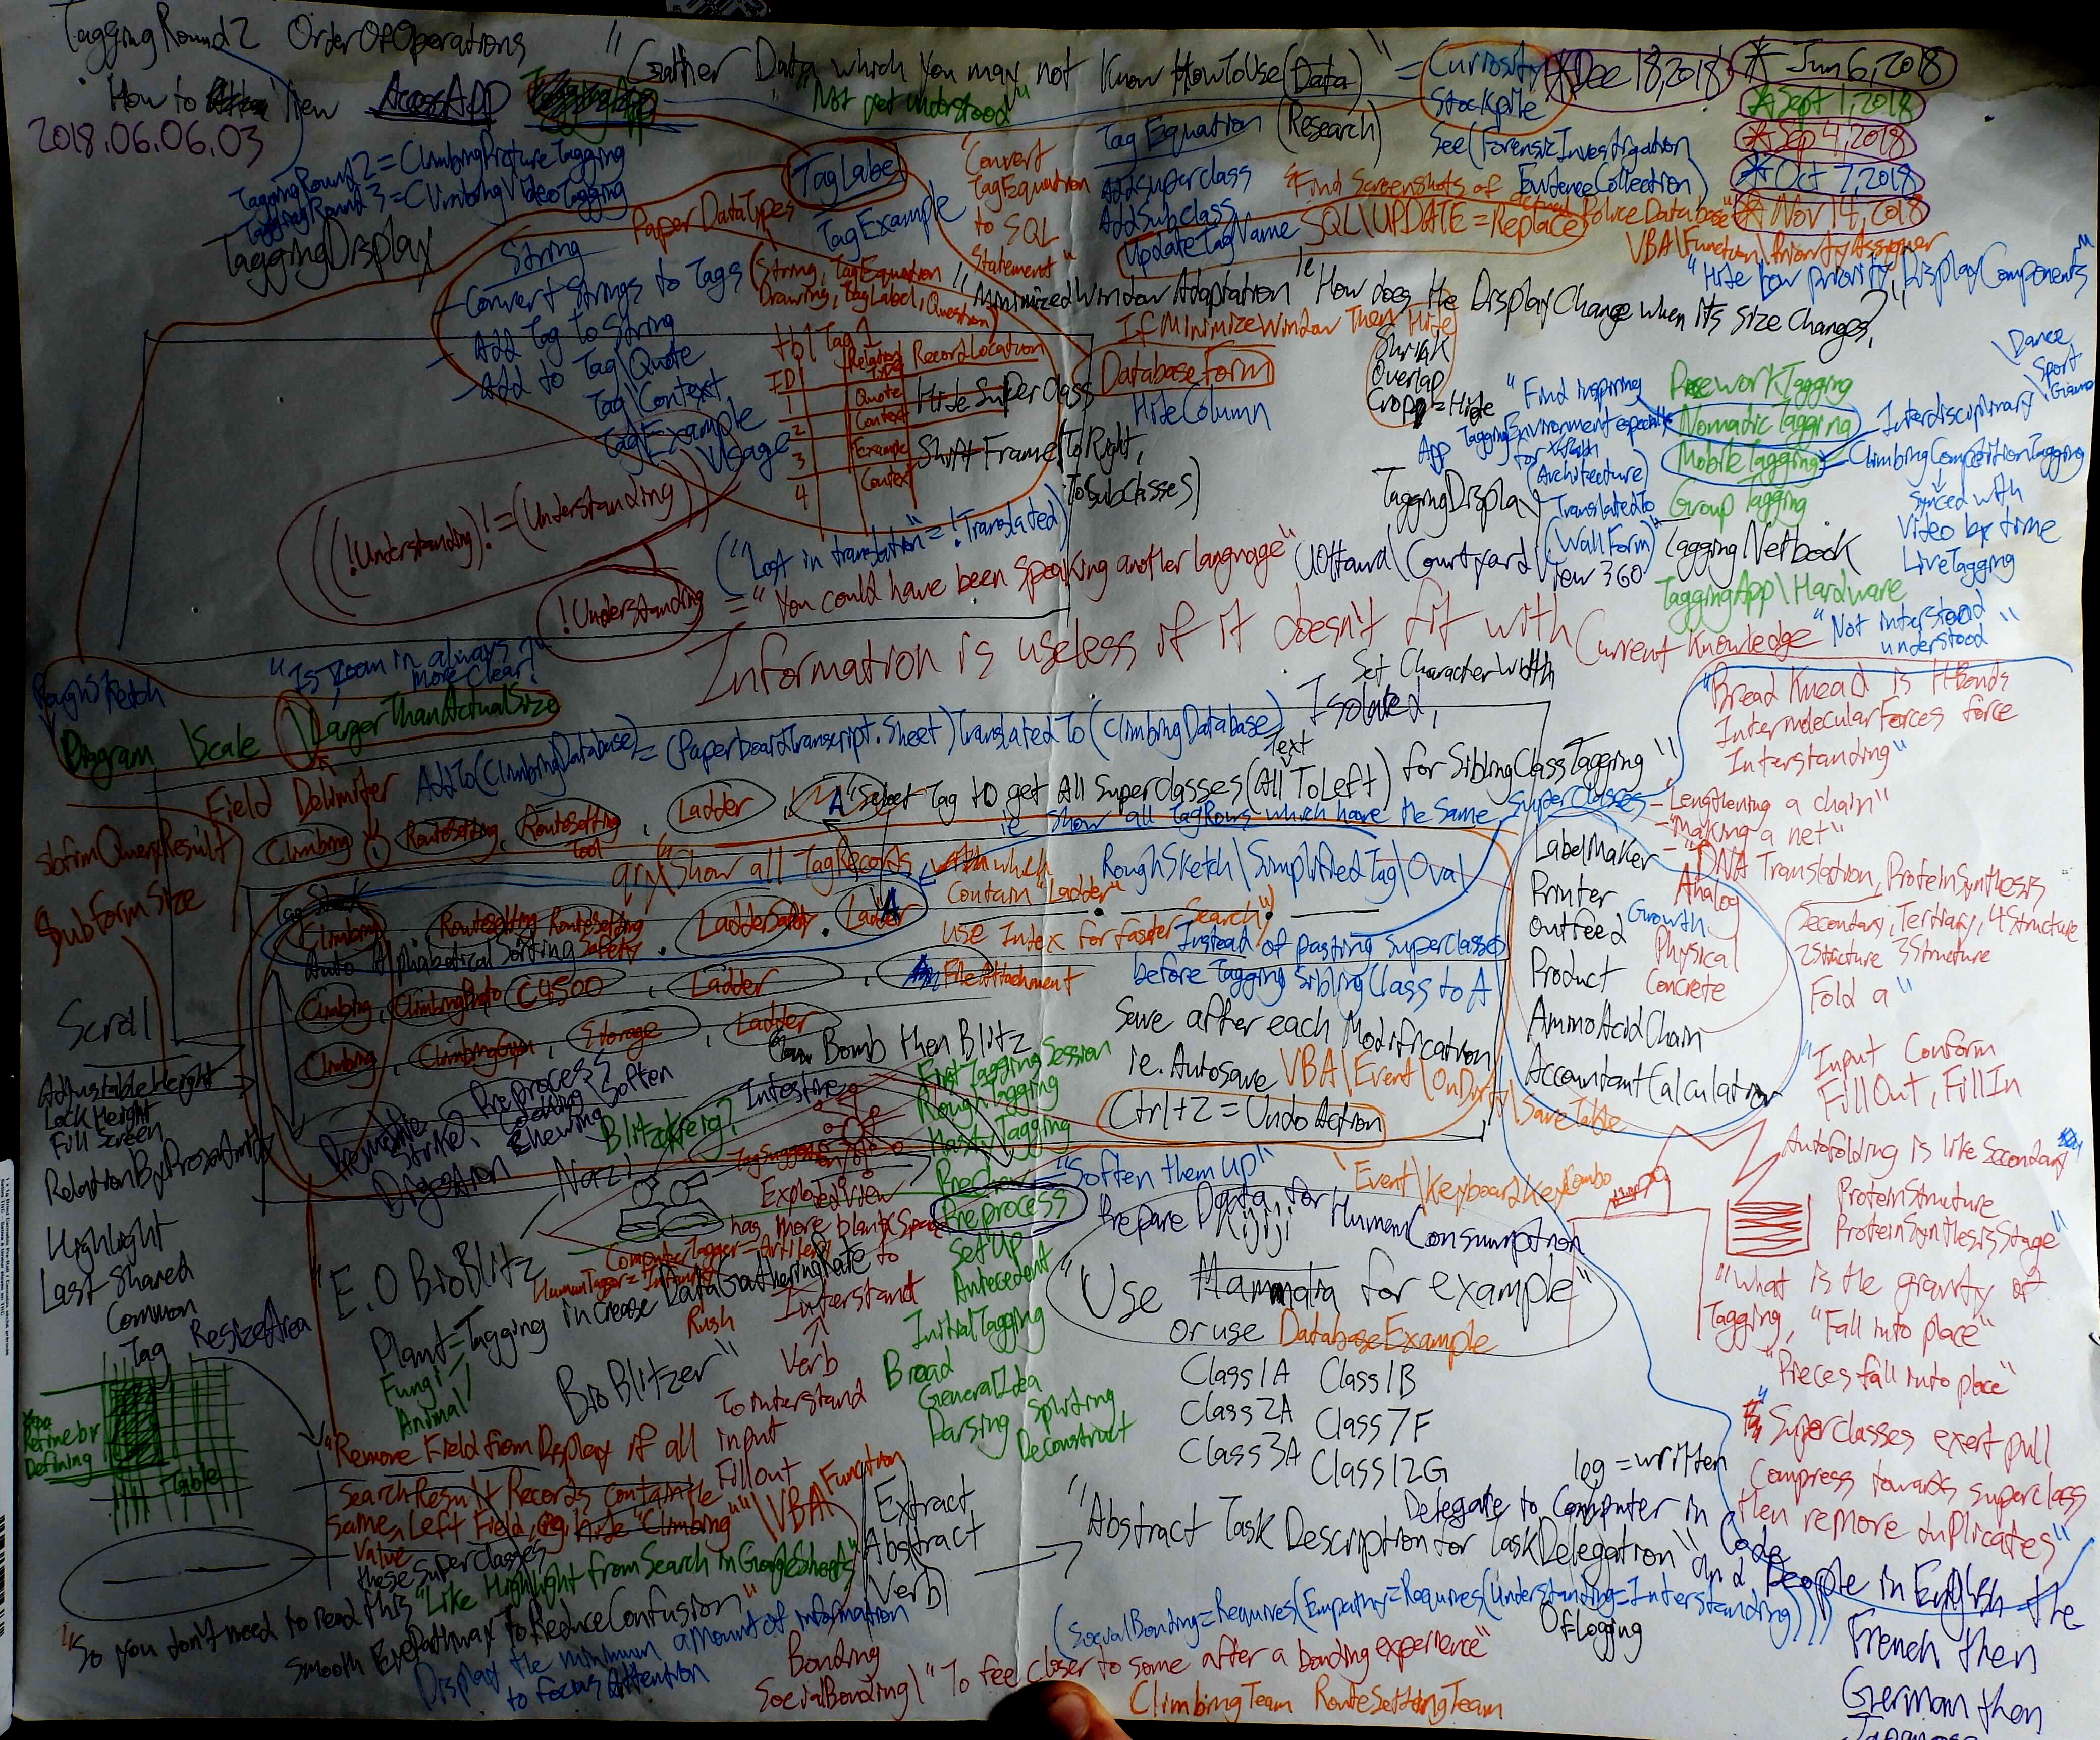 TaggingRound2 OrderOfOperations
"Gather Data which you may not Know HowToUse (Data)" = Curiosity
Stockpile
*Dec 18, 2018
* Jun 6, 2018
*Sept 1, 2018
*Sep 4, 2018
*Oct 7, 2018
* Nov 14, 2018
How to New AccessApp
"Not yet understood"
2018.06.06.03
TaggingRound2 = ClimbingPictureTagging
TaggingRound3 = ClimbingVideoTagging
TaggingDisplay
TagLabel
PaperDataTypes
TagExample
"Convert
TagEquation
to SQL
Statement"
TagEquation (Research)
AddSuperclass
AddSubclass
UpdateTagName SQL\UPDATE = Replace
See(ForensicInvestigation
EvidenceCollection)
"Find Screenshots of actual PoliceDatabase"
VBA\Function\PriorityAssigner
"Hide Low Priority DisplayComponents"
String
- Convert Strings to Tags
- Add Tag to String
- Add to Tag\Quote
Tag\Context
TagExample
Usage
(String, TagEquation
Drawing, TagLabel, Question)
"MinimizedWindowAdaptation" ie "How does the DisplayChange when its size changes,
If MinimizeWindow Then Hide
Shrink
Overlap
Crop = Hide
tblTag
ID Relation Type RecordLocation
1 Quote
2 Context
3 Example
4 Context
HideSuperclass
ShiftFrame(ToRight,
ToSubclasses)
DatabaseForm
HideColumn
"Find inspiring
TaggingEnvironment especially
App
(Architecture)
TaggingDisplay
TranslatedTo
(WallForm)"
PaseworkTagging
NomadicTagging
MobileTagging
Group Tagging
Tagging Netbook
TaggingApp\Hardware
Interdisciplinary
\Dance,
Sport
ClimbingCompetitionTagging
Synced with
Video by time
LiveTagging
((!Understanding)!=(Understanding)
("Lost in translation" = !Translated)
!Understanding = "You could have been speaking another language"
UOttawa\Courtyard\View 360
Information is useless if it doesn't fit with Current Knowledge
"Not interstood
understood"
RoughSketch
"Is Zoom in always
more Clear?"
Diagram \Scale \LargerThanActualSize
Set CharacterWidth
Isolated,
Field Delimiter
AddTo(ClimbingDatabase) = (PaperboardTranscript.Sheet)TranslatedTo(ClimbingDatabase)
"Select Tag to get All Superclasses (All Text ToLeft) for SiblingClassTagging"
ie show all TagRows which have the same Superclasses
"Bread Knead is HBonds
IntermolecularForces force
Interstanding"
- "Lengthening a chain"
- "Making a net"
- "DNA Translation, ProteinSynthesis
Secondary, Tertiary, 4Structure
2Structure 3Structure
Fold a"
sbfrmQueryResult
SubformSize
Climbing , RouteSetting, RouteSetting Tool , Ladder , A
qry "Show all TagRecords which
contain "Ladder"
RoughSketch\SimplifiedTag\Oval
Tag Stack
Climbing RouteSetting RouteSetting Safety , LadderSafety , Ladder
Auto Alphabetical Sorting
Climbing, ClimbingPhoto C4500 , Ladder , FileAttachment
Climbing , ClimbingGym , Storage , Ladder
use Index for faster Search!
Instead of pasting superclasses
before Tagging SiblingClass to A
Save after each Modification
ie. Autosave VBA\Event\OnDirty\SaveTable
Ctrl+Z = Undo Action
"Event\KeyboardKeyCombo
LabelMaker
Printer
Outfeed
Product
AminoAcidChain
AccountantCalculation
Growth
Analog
Physical
Concrete
"Input Conform
FillOut, FillIn
Autofolding is like Secondary
ProteinStructure
ProteinSynthesisStage"
"What is the gravity of
Tagging, "Fall into place"
"Pieces fall into place"
"Superclasses exert pull
Compress towards superclass
then remove duplicates"
Scroll
AdjustableHeight
Lock Height
Fill Screen
RelationByProximity
Highlight
Last Shared
Common
Tag
ResizeArea
Refine by
Defining
Table
Bomb then Blitz
Preprocess
Soften
Chewing
Digestion
Intestine
Nazi
Blitzkrieg?
ExplodedView
has more blank space
ComputerTagger = Artillery
HumanTagger = Infantry
Rush
First Tagging Session
Rough Tagging
Hasty Tagging
Preprocess
Set Up
Antecedent
InitialTagging
Broad
GeneralIdea
Parsing Splitting
Deconstruct
"Soften them up"
Prepare Data for HumanConsumption
Kijiji
"Use Mammalia for example"
or use DatabaseExample
Class1A Class1B
Class2A Class7F
Class3A Class12G
"E.O BioBlitz
increase DataGatheringRate to
Interstand
Verb
To interstand
input
Fill out
Plant = Tagging
Fungi
Animal
BioBlitzer"
"Remove Field from Display if all
SearchResult Records contain the
same Left Field, eg. hide "Climbing"" \VBA Function
Value
these superclasses
"Like Highlight from Search in GoogleSheets"
"So you don't need to read this
Smooth EyePathway ToReduceConfusion"
Display the minimum amount of information
to focus Attention
Extract
Abstract
Verb
"Abstract Task Description for TaskDelegation"
log = written
Delegate to Computer in
Code
and People in English the
French then
German then
Japanese
(SocialBonding = Requires(Empathy = Requires(Understanding = Interstanding)))
Of Logging
Bonding
SocialBonding\"To feel closer to some after a bonding experience"
ClimbingTeam RouteSettingTeam